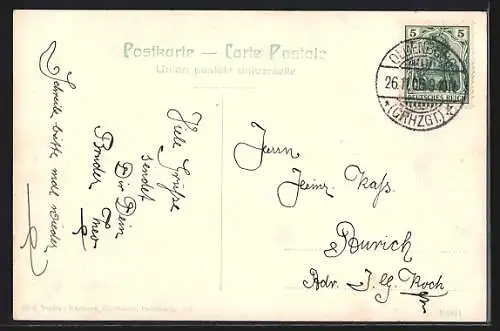 Postkarte — Carte Postale
Union postale universelle
5 5
DEUTSCHES REICH
OLDENBURG
26.11.05.9
*(GRHZGT)*
Schreibe bitte mal wieder
Viele Grüße
sendet
Dir Dein
Bruder Theo
Herrn
Heinr. Kass.
Aurich
Adr. J. G. Koch